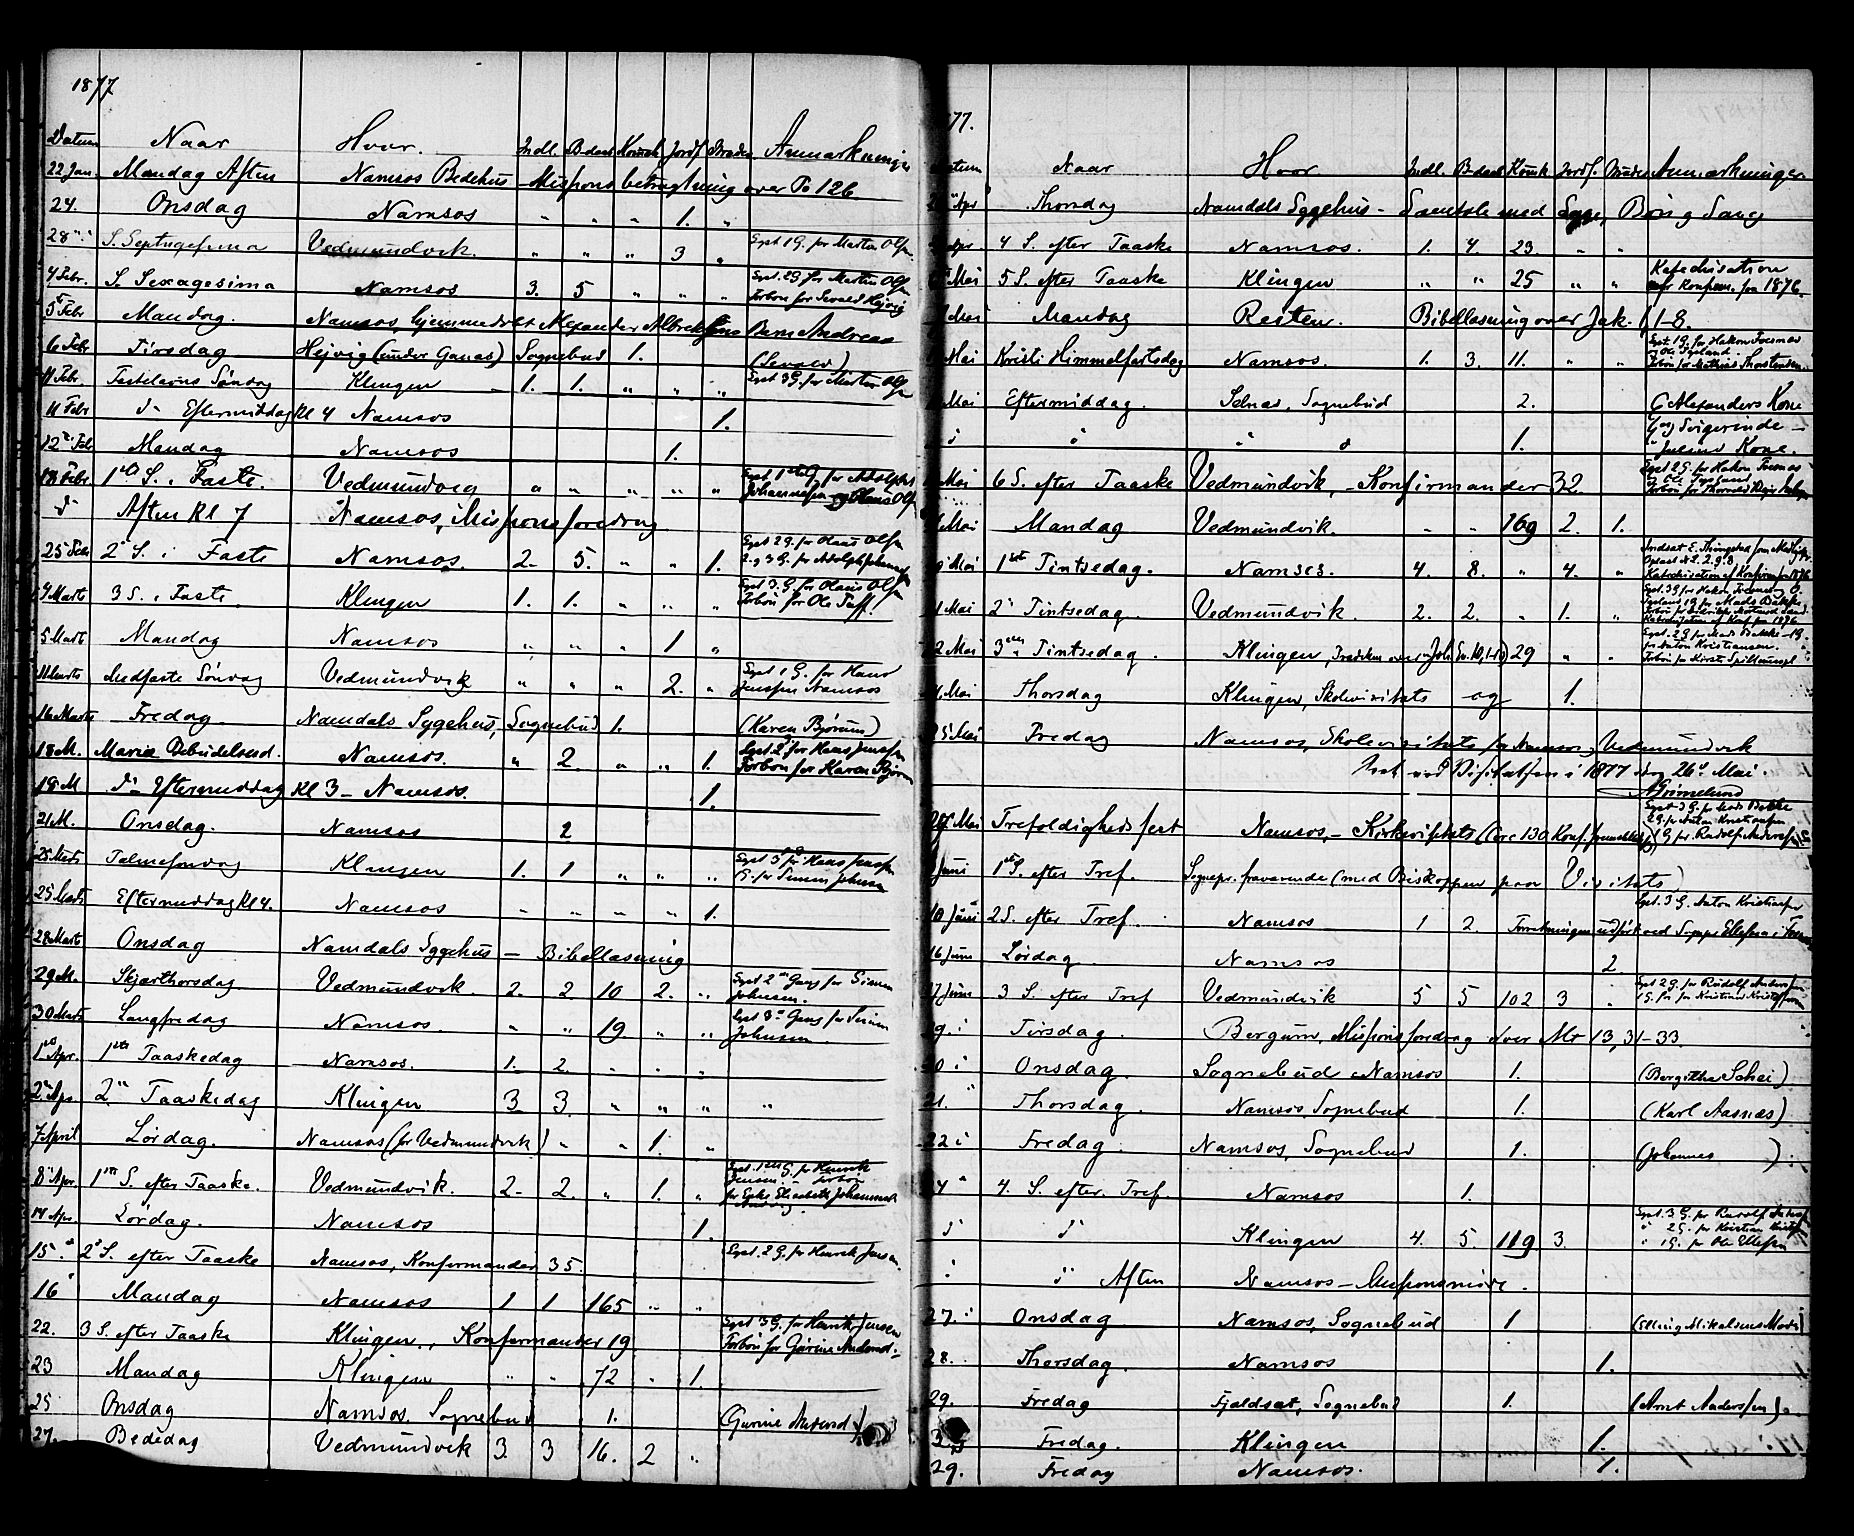 1877
Datum Naar Hvor. Indl. Bdaab Komm Jordf. Brudev. Anmærkninger
22 Jan. Mandag Aften Namsos Bedehus - Missionsbetragtning over Ps 126
24. Onsdag Namsos " " " 1. "
28 " S. Septuagesima Vedmundvik. " " " 3 " Lyst 1 G. for Martin Olsen
4 Febr. S. Sexagesima Namsos 3. 5 " " " Lyst 2 G for Martin Olsen
Forbøn for Sevald Hejvig
5 Febr Mandag. Namsos, hjemmedøbt Alexander Albrektsens Barn Andreas
6 Febr Tirsdag Hejvig (under Ganas) Sognebud 1. (Sevald)
11 Febr. Fastelavns Søndag Klingen 1. 1. " " " Lyst 3 G. for Martin Olsen
11 Febr d° Eftermiddag Kl 4 Namsos 1.
12 Febr Mandag Namsos 1.
18 Febr. 1ste S. i Faste. Vedmundvig " " " " " Lyst 1ste G. for Adolph
Johannesen og Olaus Olsen
d° Aften Kl 7 Namsos, Missionsforedrag
25 Febr 2 S. i Faste Namsos. 2. 5. " " 1. Lyst 2 G. for Olaus Olsen
2 og 3 G. for Adolph Johannesen
4 Marts 3 S. i Faste. Klingen 1. 1. " " " Lyst 3. G for Olaus Olsen
Forbøn for Ole
5 Marts Mandag Namsos " " " 1 "
11 Marts Midfaste Søndag Vedmundvik " " " 2. " Lyst 1 G. for Hans
Jenssen Namsos
16 Marts Fredag Namdals Sygehus, Sognebud 1. (Karen Bjørum)
18 M. Mariæ Bebudelsesd. Namsos. " 2. " " 1. Lyst 2 for Hans Jenssen
Forbøn for Karen Bjørum
18 M d° Eftermiddag Kl 3 - Namsos. 1.
21 M. Onsdag. Namsos 2
25 Marts Palmesøndag Klingen 1. 1 " " " Lyst 3 G for Hans Jenssen
1 G. for Simen Johnsen
25 Marts Eftermiddag Kl 4. Namsos " " " " 1.
28 Marts Onsdag Namdals Sygehus - Bibellæsning
29 M. Skjærthorsdag Vedmundvik. 2. 2 10 2. " Lyst 2 Gang for Simen
Johnsen.
30 Marts Langfredag Namsos. " " 19. " " Lyst 3 Gang for Simen
Johnsen.
1 Apr. 1ste Paaskedag Namsos. 1. 2 " " "
2 Apr. 2. Paaskedag Klingen 3 3. " " " "
7 April Lørdag. Namsos (for Vedmundvik) " " 1. "
8 Apr. 1ste S. efter Paaske. Vedmundvik. 2. 2. " 1. " Lyst. 1 G. for Henrik
Jensen. - Forbøn
for Elisabeth Johannesd.
14 Apr. Lørdag. Namsos 1.
15. 2 S. efter Paaske Namsos, Konfirmander 35. Lyst. 2 G. for Henrik Jensen.
16 Mandag Namsos 1 1 165 " "
22. 3 S. efter Paaske Klingen, Konfirmander 19. Lyst 3 G. for Henrik Jensen
Forbøn for Gurine Antond.
23 Mandag Klingen " " 72 " 1.
25 Onsdag Namsos. Sognebud 1. (Gurine Antond)
27. Bededag Vedmundvik 3. 3 16. 2 "
77.
atum Naar Hvor Indl. Bdaab Komk Jordf. Brudev Anmærkninger
Apr Thorsdag Namdals Sygehus - Samtale med Syge, Bøn og Sang
Apr. 4 S. efter Paaske Namsos. 1. 4. 23. " "
Mai 5 S. efter Paaske Klingen " " 25 " " Katechisation
over Konfirm. fra 1876.
Mai Mandag Resten. Bibellæsning over Jak. 1, 1-8.
Mai Kristi Himmelfartsdag Namsos. 1. 3. 11. " " Lyst 1 G. for Hakon Fosnæs
og Ole Sysland
Forbøn for Mathias Thorstensen.
Mai Eftermiddag. Selnæs, Sognebud 2. G Alexanders Kone
d° d° " d° 1. og Svigerinde -
Julius Kone.
Mai 6 S. efter Paaske Vedmundvik, - Konfirmander 32. Lyst 2 G. for Hakon Fosnæs
og Ole Sysland
Mai Mandag Vedmundvik. " " 169 2. 1.
Mai 1ste Pintsedag. Namsos. 4. 8. " 4. "
Katechisation af Konfirm. fra 1876
1 Mai 2 Pintsedag. Vedmundvik. 2. 2. " 1. "
Katechisation af Konf. fra 1876
2 Mai 3die Pintsedag. Klingen, Prædiken over Joh. Ev. 10, 1-10) 29 " " Lyst. 2 G. for Mads Bakke - 1 G.
for Anton Kristiansen.
Mai Thorsdag Klingen, Skolevisitats og 1.
25 Mai Fredag Namsos, Skolevisitats for Namsos og Vedmundvik
Seet ved Visitatsen i 1877 den 26 Mai.
AGrimelund
27 Mai Trefoldighedsfest Namsos, - Kirkevisitats (Circ. 130 Konf. fremstillede) Lyst 3 G. for Mads Bakke
2 G. for Anton Kristiansen
1 G. for Rudolf Andersen
Juni 1ste S. efter Tref. Sognepr. fraværende (med Biskoppen paa Visitats)
10 Juni 2 S. efter Tref. Namsos 1 2. Forretningen udført ved Sognepr Ellefsen i Fosnæs Lyst. 3 G. Anton Kristiansen
16 Juni Lørdag Namsos 2
17 Juni 3 S. efter Tref Vedmundvik 5 5 102 3 " Lyst 2 G. for Rudolf Andersen
1 G. for Kristian Kristiansen
19. Tirsdag. Bergum, Missionsforedrag over Mt 13, 31-33.
20 Onsdag. Sognebud Namsos 1. (Bergitha Schei).
21. Thorsdag. Namsos Sognebud 1. (Karl Aasnæs)
22 Fredag. Namsos, Sognebud 1. (Johannes )
24 4. S. efter. Tref. Namsos 1.
d° d° Klingen 4. 5. 119 3. Lyst. 3 G. for Rudolf Anders.
" 2 G. for Kristian Kristiansen
" 1 G. for Ole Ellefsen
d° d° Aften Namsos - Missionsmøde.
27. Onsdag Namsos, Sognebud 1 (Elling Mikalsens Moder)
28. Thorsdag. Namsos 1.
29. Fredag Fjeldsæt, Sognebud 1. (Arnt Anderssen).
Fredag. Klingen 1.
29. Fredag Namsos. 1.